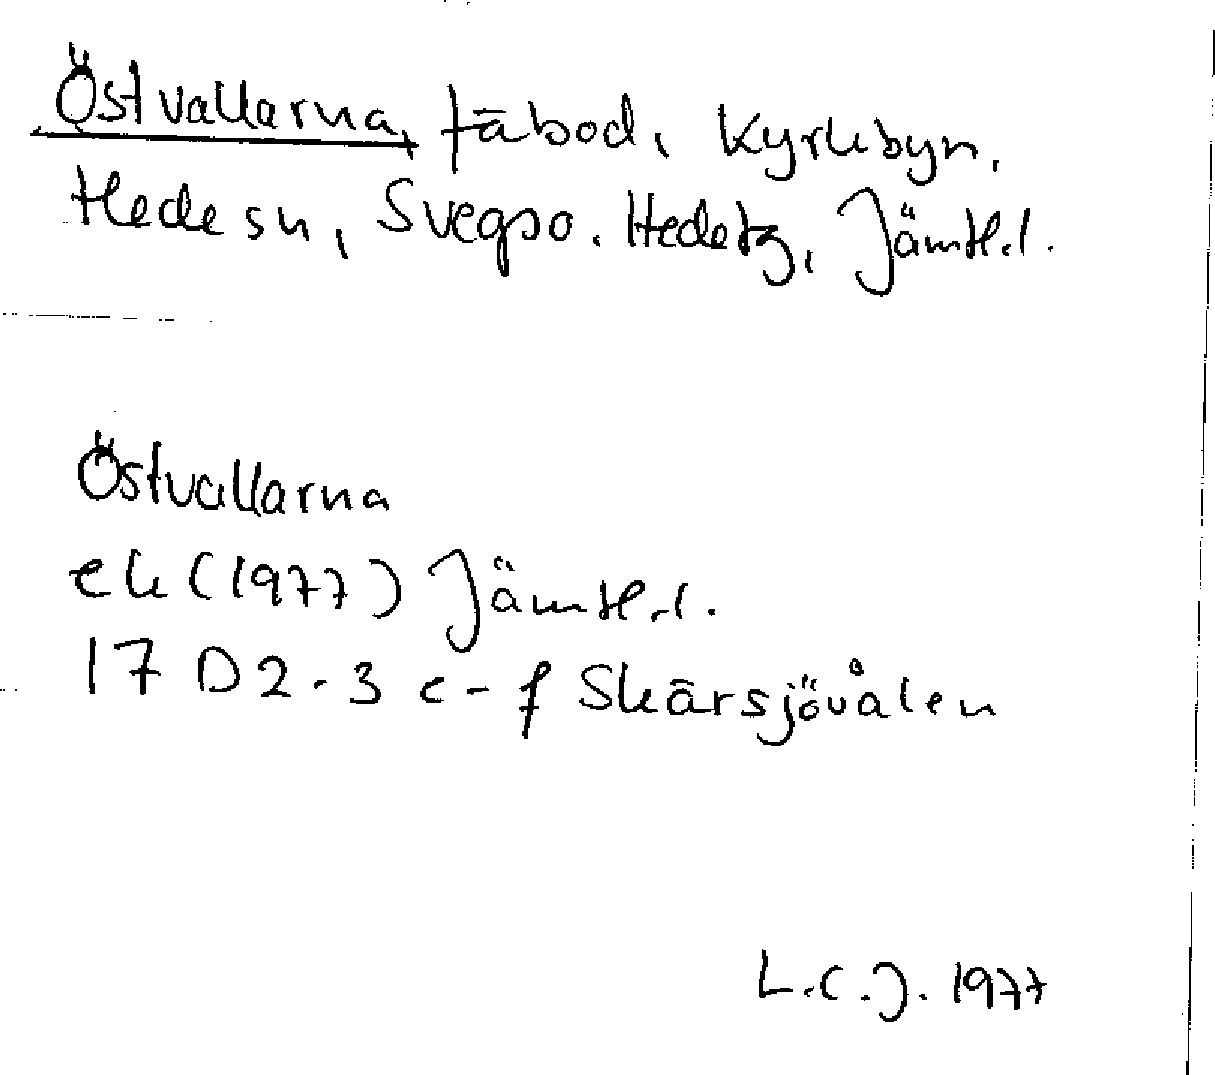 Östvallarna, fäbod, Kyrkbyn,
Hede sn, Svegs o. Hede tg, Jämtl.l.
Östvallarna
ek (1977) Jämtl.l.
17 D 2-3 c-f Skärsjövålen
L.C.J. 1977